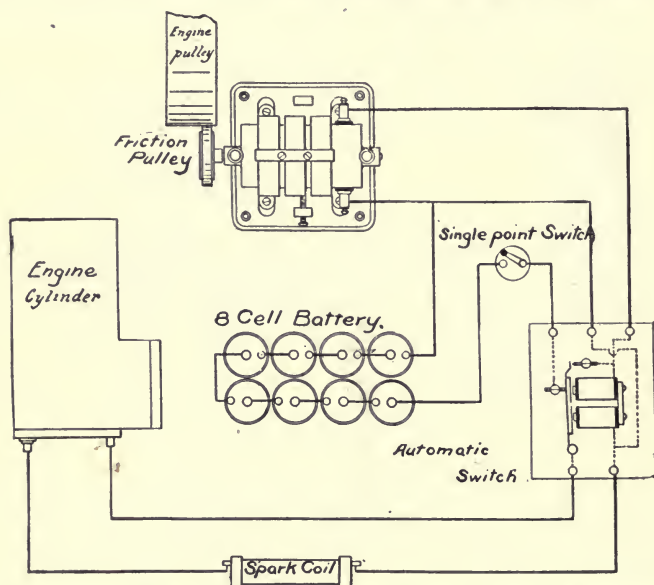 Engine
pulley
Friction
Pulley
Single point Switch
Engine
Cylinder
8 Cell Battery.
Automatic
Switch
Spark Coil